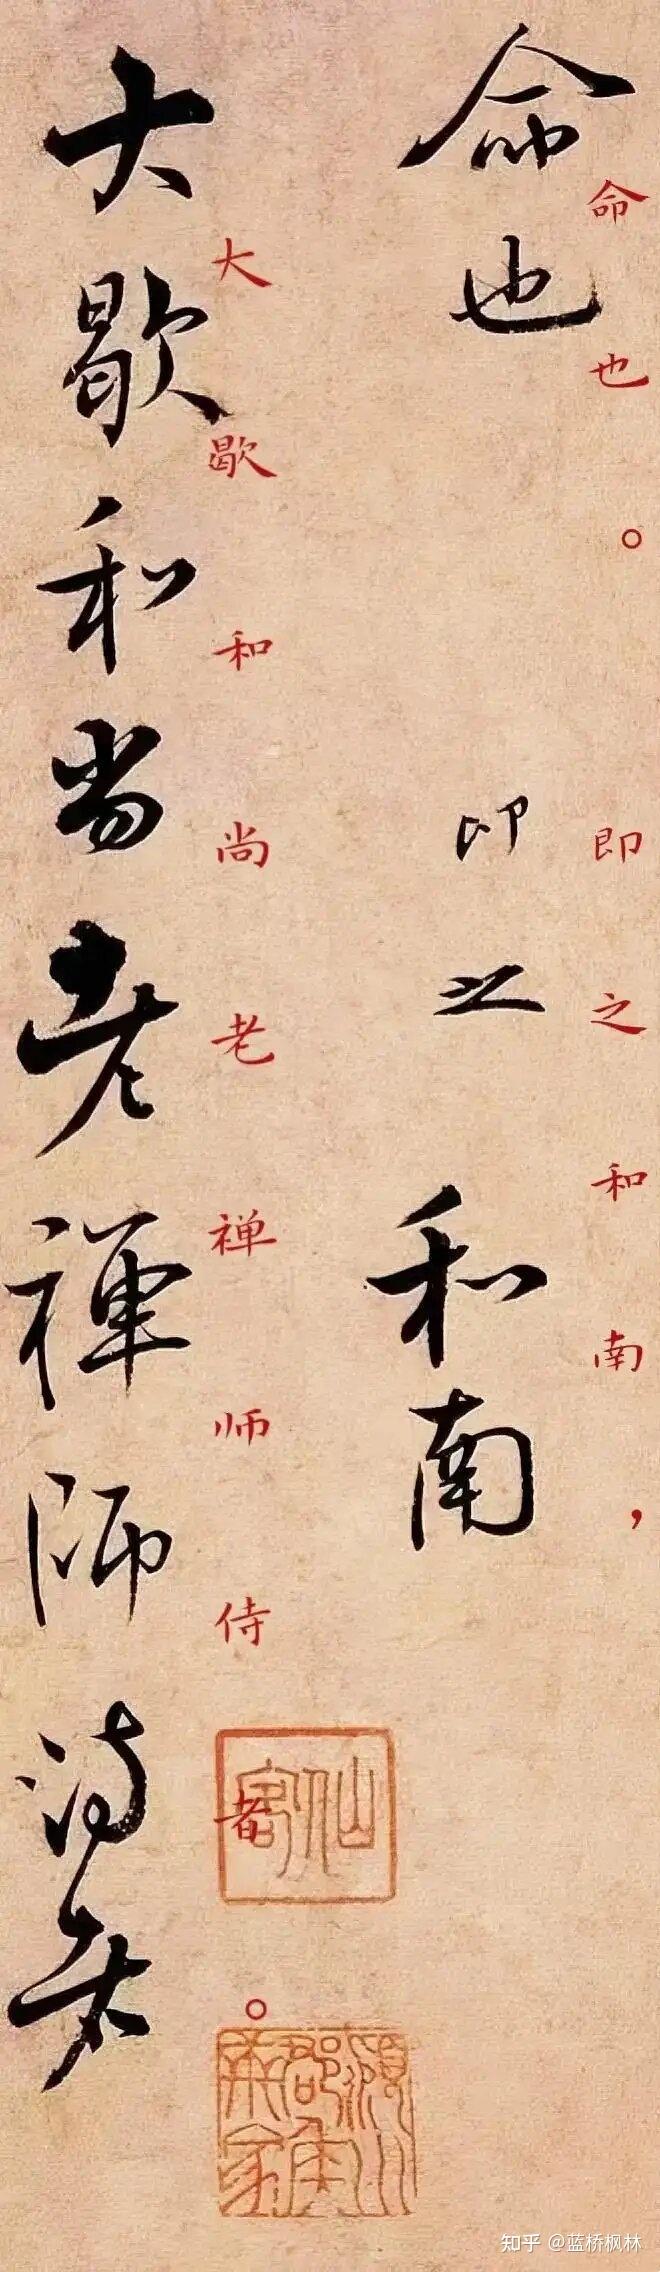 命也。即之和南，
命也 即之 和南
大歇和尚老禅师侍者。
仙客
大歇和尚老禪師侍者
知乎 @蓝桥枫林